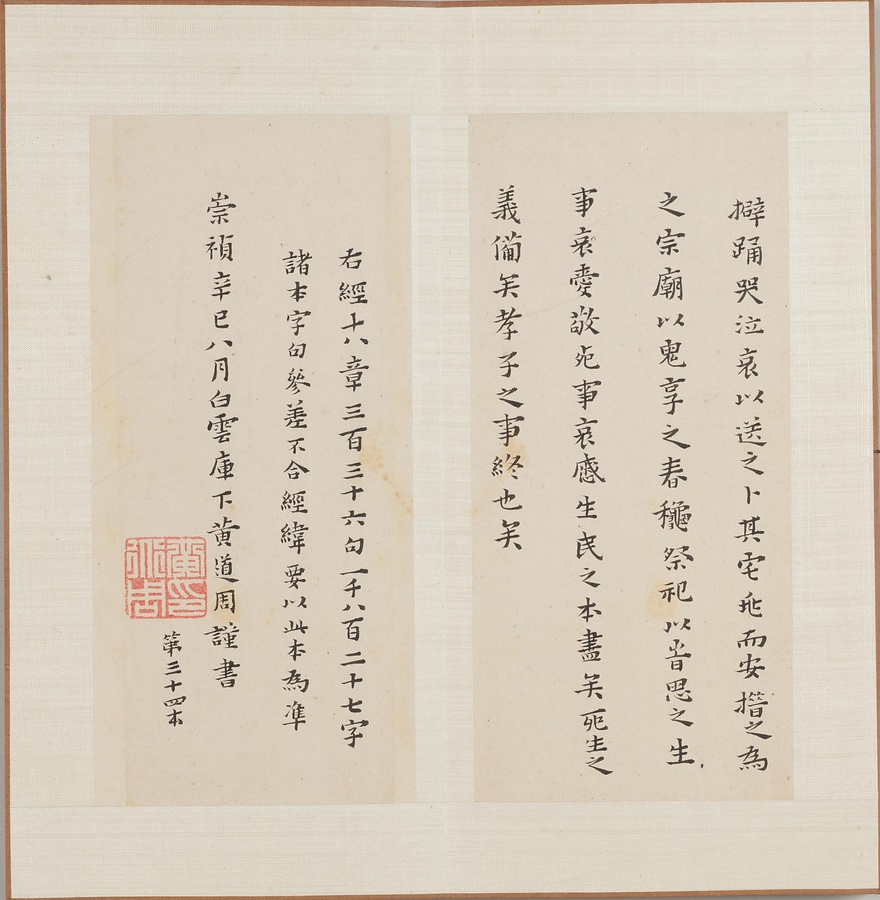 擗踊哭泣哀以送之卜其宅兆而安措之為
之宗廟以鬼享之春穐祭祀以旹思之生
事哀愛敬死事哀慼生民之本盡矣死生之
義備矣孝子之事終也矣
右經十八章三百三十六句一千八百二十七字
諸本字句參差不合經緯要以此本為凖
崇禎辛巳八月白雲庫下黃道周謹書
第三十四本
黃道周印